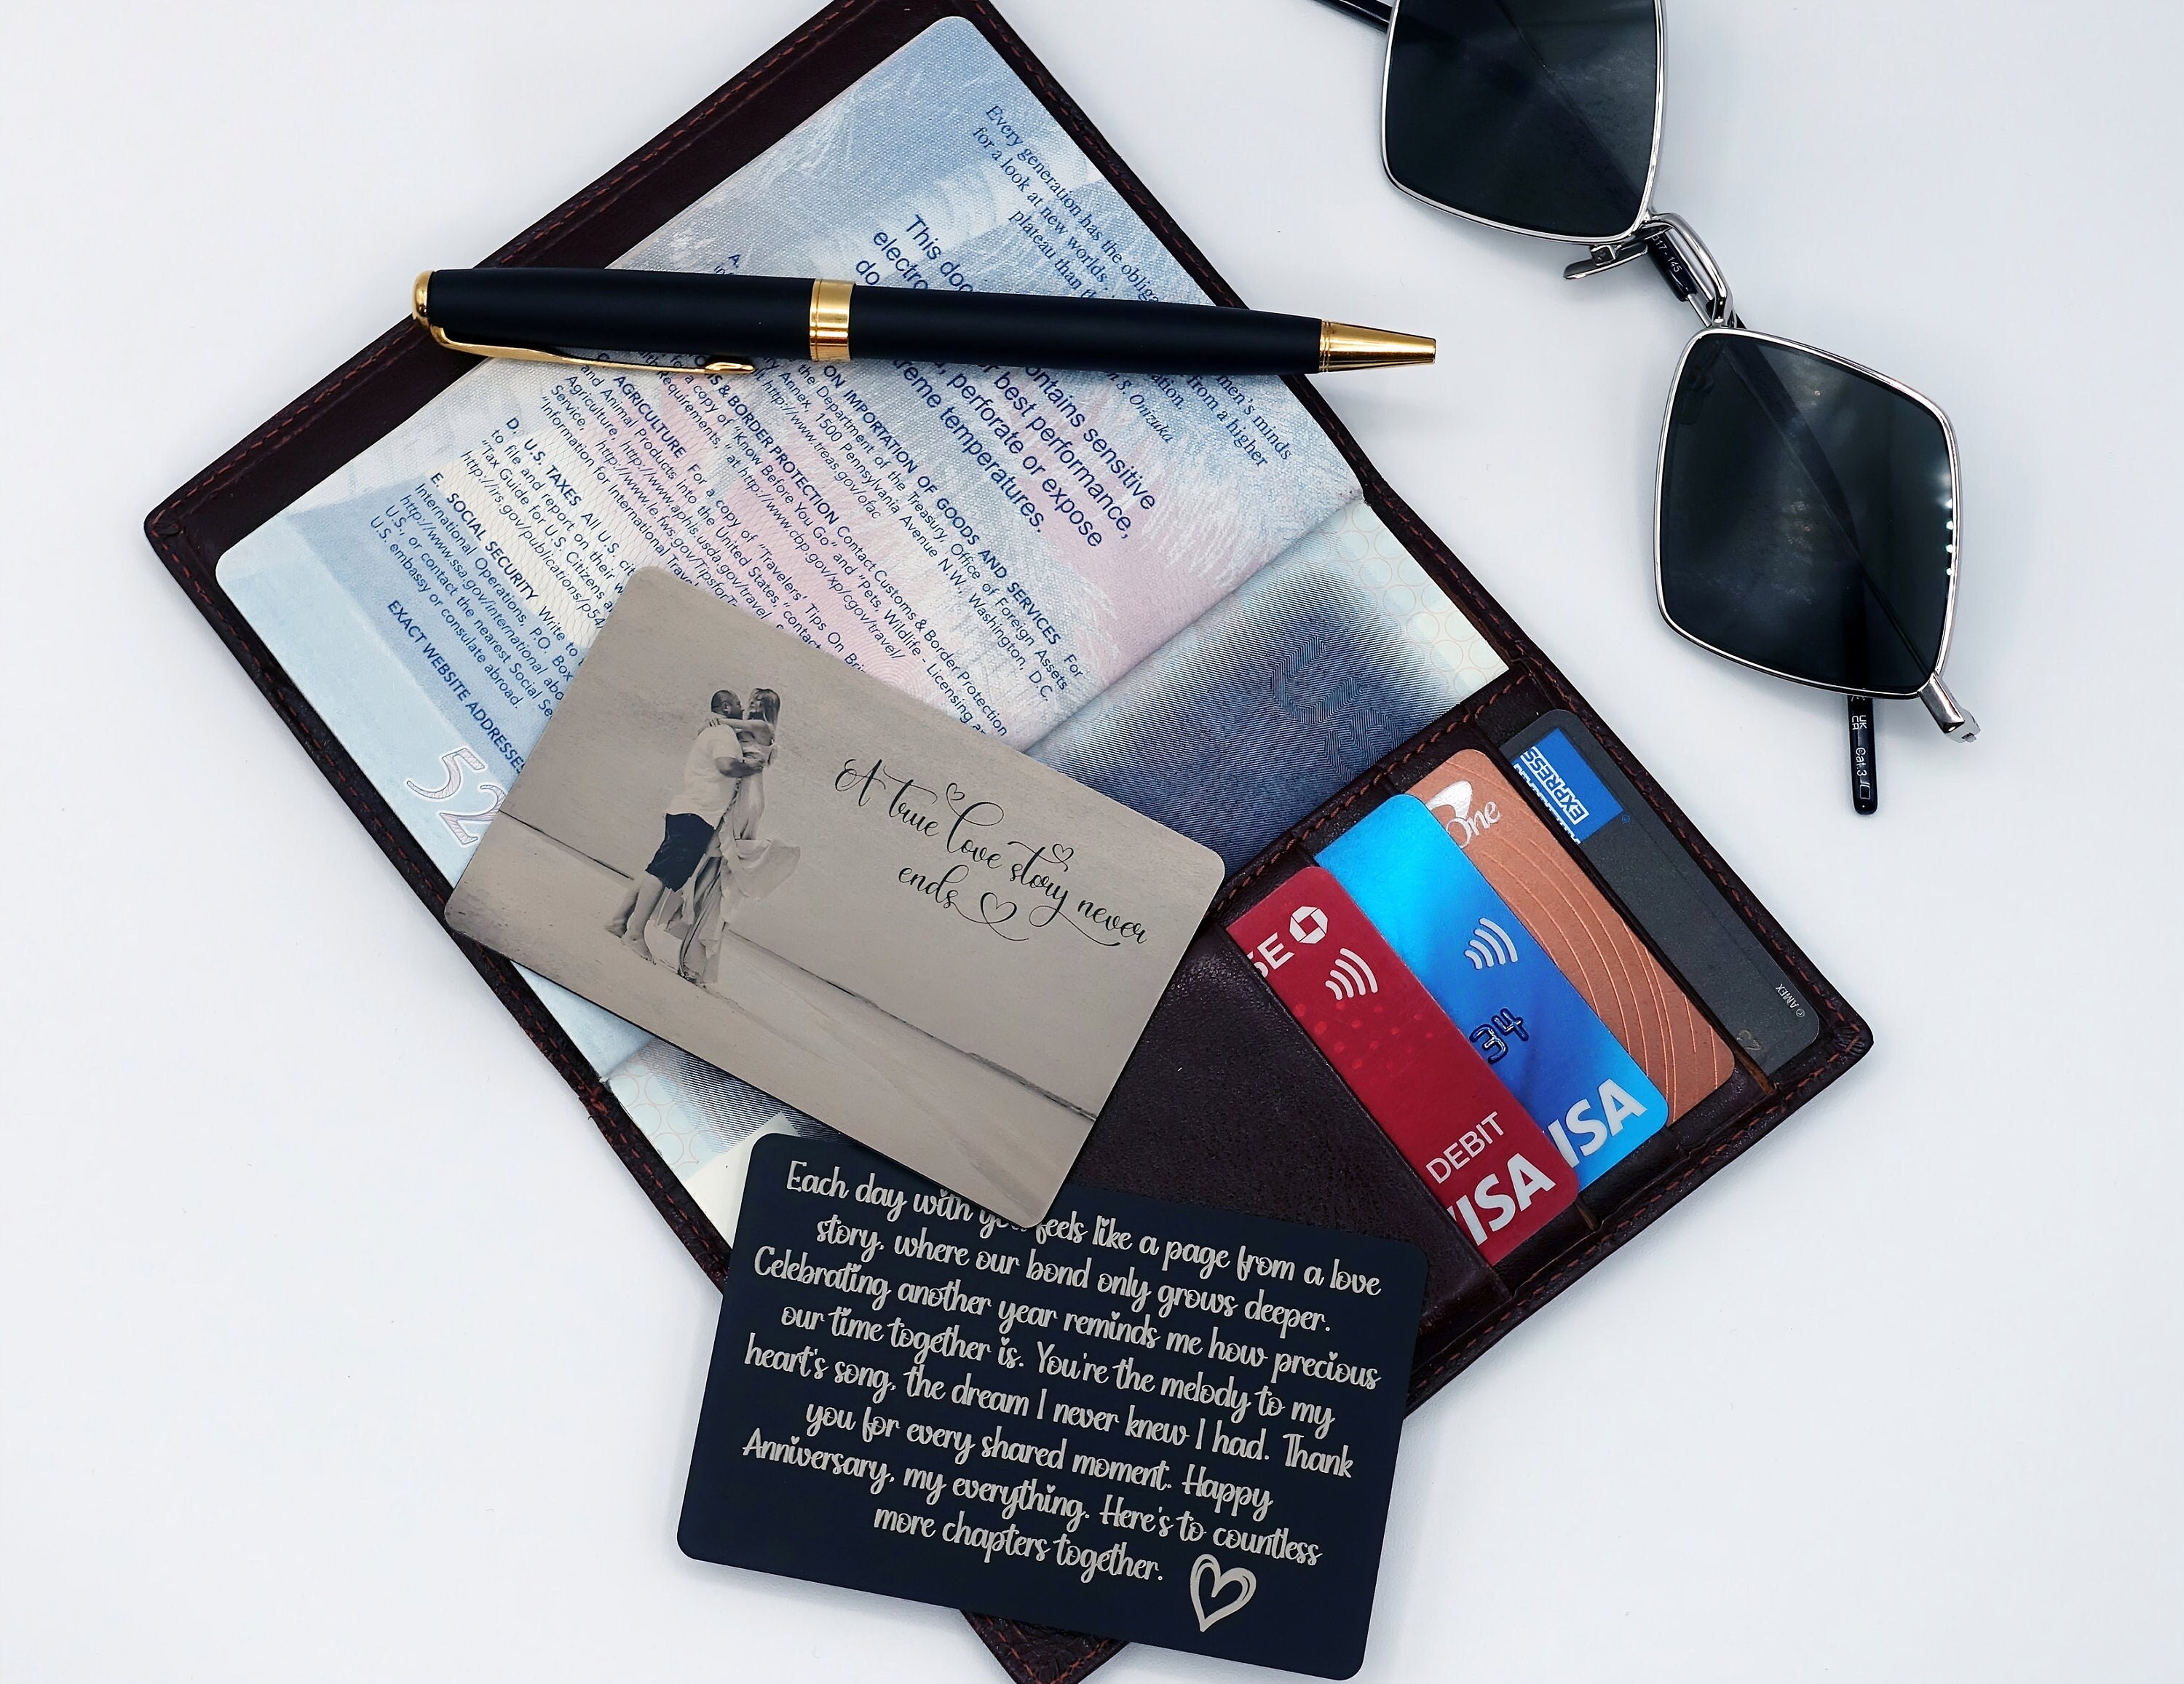 Every generation has the obliga
men's minds
for a look at new worlds.
from a higher
plateau than
ation.
n S. Onizuka
This doc
ontains sensitive
electro
r best performance,
do
, perforate or expose
reme temperatures.
A.
ON IMPORTATION OF GOODS AND SERVICES For
the Department of the Treasury, Office of Foreign Assets
ry Annex, 1500 Pennsylvania Avenue N.W., Washington, D.C.
http://www.treas.gov/ofac
& BORDER PROTECTION Contact Customs & Border Protection
for a copy of "Know Before You Go" and "Pets, Wildlife - Licensing
Requirements," at http://www.cbp.gov/xp/cgov/travel/
AGRICULTURE For a copy of "Travelers' Tips On
and Animal Products into the United States," contact
Agriculture, http://www.aphis.usda.gov/travel
Service, http://www.fws.gov/Tips
"Information for International Trav
D. U.S. TAXES All U.S. cit
to file and report on their w
"Tax Guide for U.S. Citizens a
http://irs.gov/publications/p54
E. SOCIAL SECURITY Write to
International Operations, P.O. Box
http://www.ssa.gov/international
U.S., or contact the nearest Social Se
U.S. embassy or consulate abroad.
EXACT WEBSITE ADDRESSES
52
A true love story never
ends
Each day with you feels like a page from a love
story, where our bond only grows deeper.
Celebrating another year reminds me how precious
our time together is. You're the melody to my
heart's song, the dream I never knew I had. Thank
you for every shared moment. Happy
Anniversary, my everything. Here's to countless
more chapters together.
SE
DEBIT
VISA
34
ISA
One
EXPRESS
© AMEX
17-145
UK
CA
Cat.3